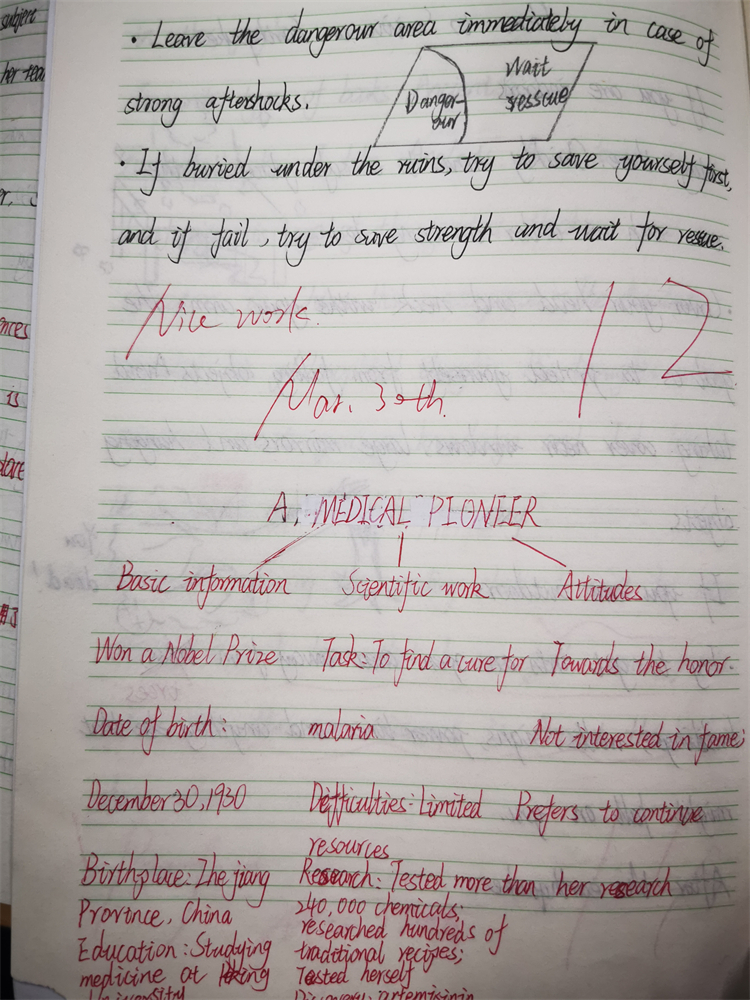 subject
her tea
· Leave the dangerour area immediately in case of
Wait
strong aftershocks.
Danger-
our
ressue
· If buried under the ruins, try to save yourself first,
and if fail, try to save strength and wait for rescue.
Nice work.
12
Mar. 30th.
nces
is
A MEDICAL PIONEER
Basic information Scientific work Attitudes
Won a Nobel Prize Task: To find a cure for Towards the honor.
Date of birth: malaria Not interested in fame;
December 30, 1930 Difficulties: Limited Prefers to continue
resources
Birthplace: Zhejiang Research: Tested more than her research
Province, China 240,000 chemicals;
researched hundreds of
Education: Studying traditional recipes;
medicine at Peking Tested herself
University Discovery: artemisinin